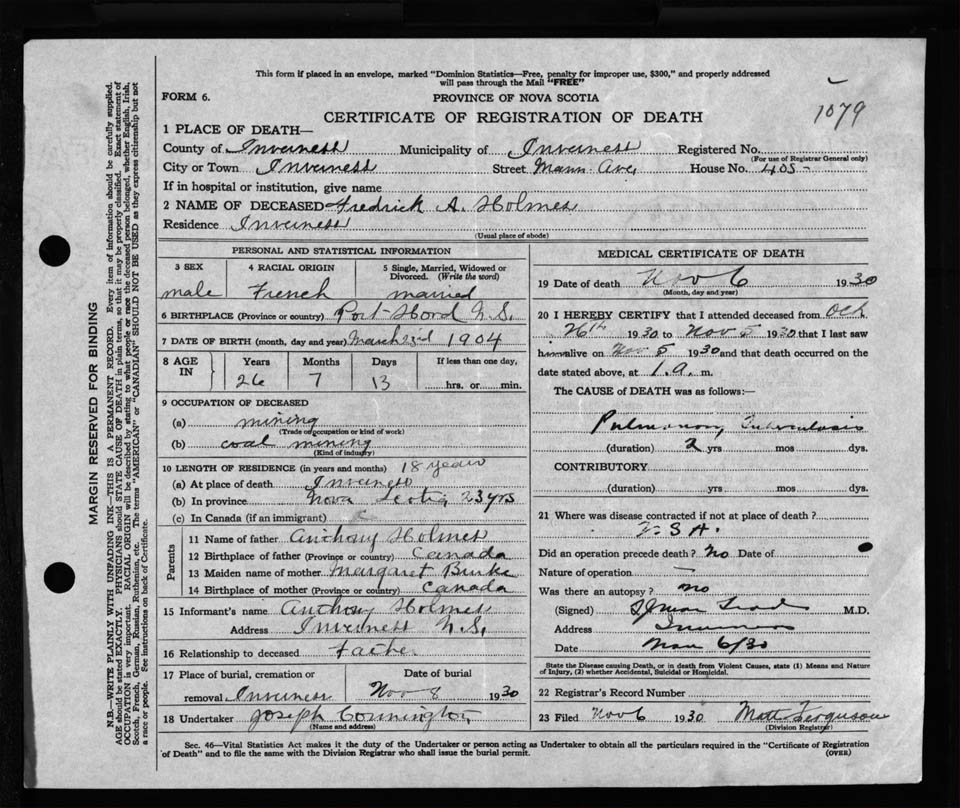 This form if placed in an envelope, marked "Dominion Statistics—Free, penalty for improper use, $300," and properly addressed
will pass through the Mail "FREE"
FORM 6.
PROVINCE OF NOVA SCOTIA
1079
CERTIFICATE OF REGISTRATION OF DEATH
1 PLACE OF DEATH—
County of Inverness Municipality of Inverness Registered No.
(For use of Registrar General only)
City or Town Inverness Street Mann Ave, House No. 405-
If in hospital or institution, give name
2 NAME OF DECEASED Fredrick A. Holmes
Residence Inverness
(Usual place of abode)
PERSONAL AND STATISTICAL INFORMATION
3 SEX 4 RACIAL ORIGIN 5 Single, Married, Widowed or
Divorced. (Write the word)
male French married
6 BIRTHPLACE (Province or country) Port Hord N.S.
7 DATE OF BIRTH (month, day and year) March 23rd 1904
8 AGE IN Years Months Days If less than one day,
26 7 13 hrs. or min.
9 OCCUPATION OF DECEASED
(a) mining
(Trade occupation or kind of work)
(b) coal mining
(Kind of industry)
10 LENGTH OF RESIDENCE (in years and months) 18 years
(a) At place of death Inverness
(b) In province Nova Scotia 23 yrs
(c) In Canada (if an immigrant)
Parents
11 Name of father Anthony Holmes
12 Birthplace of father (Province or country) Canada
13 Maiden name of mother Margaret Burke
14 Birthplace of mother (Province or country) Canada
15 Informant's name Anthony Holmes
Address Inverness N.S.
16 Relationship to deceased Father
17 Place of burial, cremation or Date of burial
removal Inverness Nov 8 1930
18 Undertaker Joseph Connington
(Name and address)
MEDICAL CERTIFICATE OF DEATH
19 Date of death Nov 6 1930
(Month, day and year)
20 I HEREBY CERTIFY that I attended deceased from Oct
26th 1930 to Nov 5 1930 that I last saw
him alive on Nov 5 1930 and that death occurred on the
date stated above, at 1.a. m.
The CAUSE OF DEATH was as follows:
Pulmonary Tuberculosis
(duration) 2 yrs mos dys.
CONTRIBUTORY
(duration) yrs mos dys.
21 Where was disease contracted if not at place of death?
U.S.A.
Did an operation precede death? No Date of
Nature of operation —
Was there an autopsy? no
(Signed) M.D.
Address Inverness
Date Nov 6/30
State the Disease causing Death, or in death from Violent Causes, state (1) Means and Nature
of Injury, (2) whether Accidental, Suicidal or Homicidal.
22 Registrar's Record Number
23 Filed Nov 6 1930 Matt. Ferguson
(Division Registrar)
Sec. 46—Vital Statistics Act makes it the duty of the Undertaker or person acting as Undertaker to obtain all the particulars required in the "Certificate of Registration
of Death" and to file the same with the Division Registrar who shall issue the burial permit. (OVER)
MARGIN RESERVED FOR BINDING
N.B.—WRITE PLAINLY WITH UNFADING INK—THIS IS A PERMANENT RECORD. Every item of information should be carefully supplied.
AGE should be stated EXACTLY. PHYSICIANS should STATE CAUSE OF DEATH in plain terms, so that it may be properly classified. Exact statement of
OCCUPATION is very important. RACIAL ORIGIN will be described by stating to what people or race the deceased person belonged, whether English, Irish,
Scotch, French, German, Russian, Ruthenian, etc. The terms "AMERICAN" or "CANADIAN" SHOULD NOT BE USED as they express citizenship but not
a race or people. See instructions on back of Certificate.